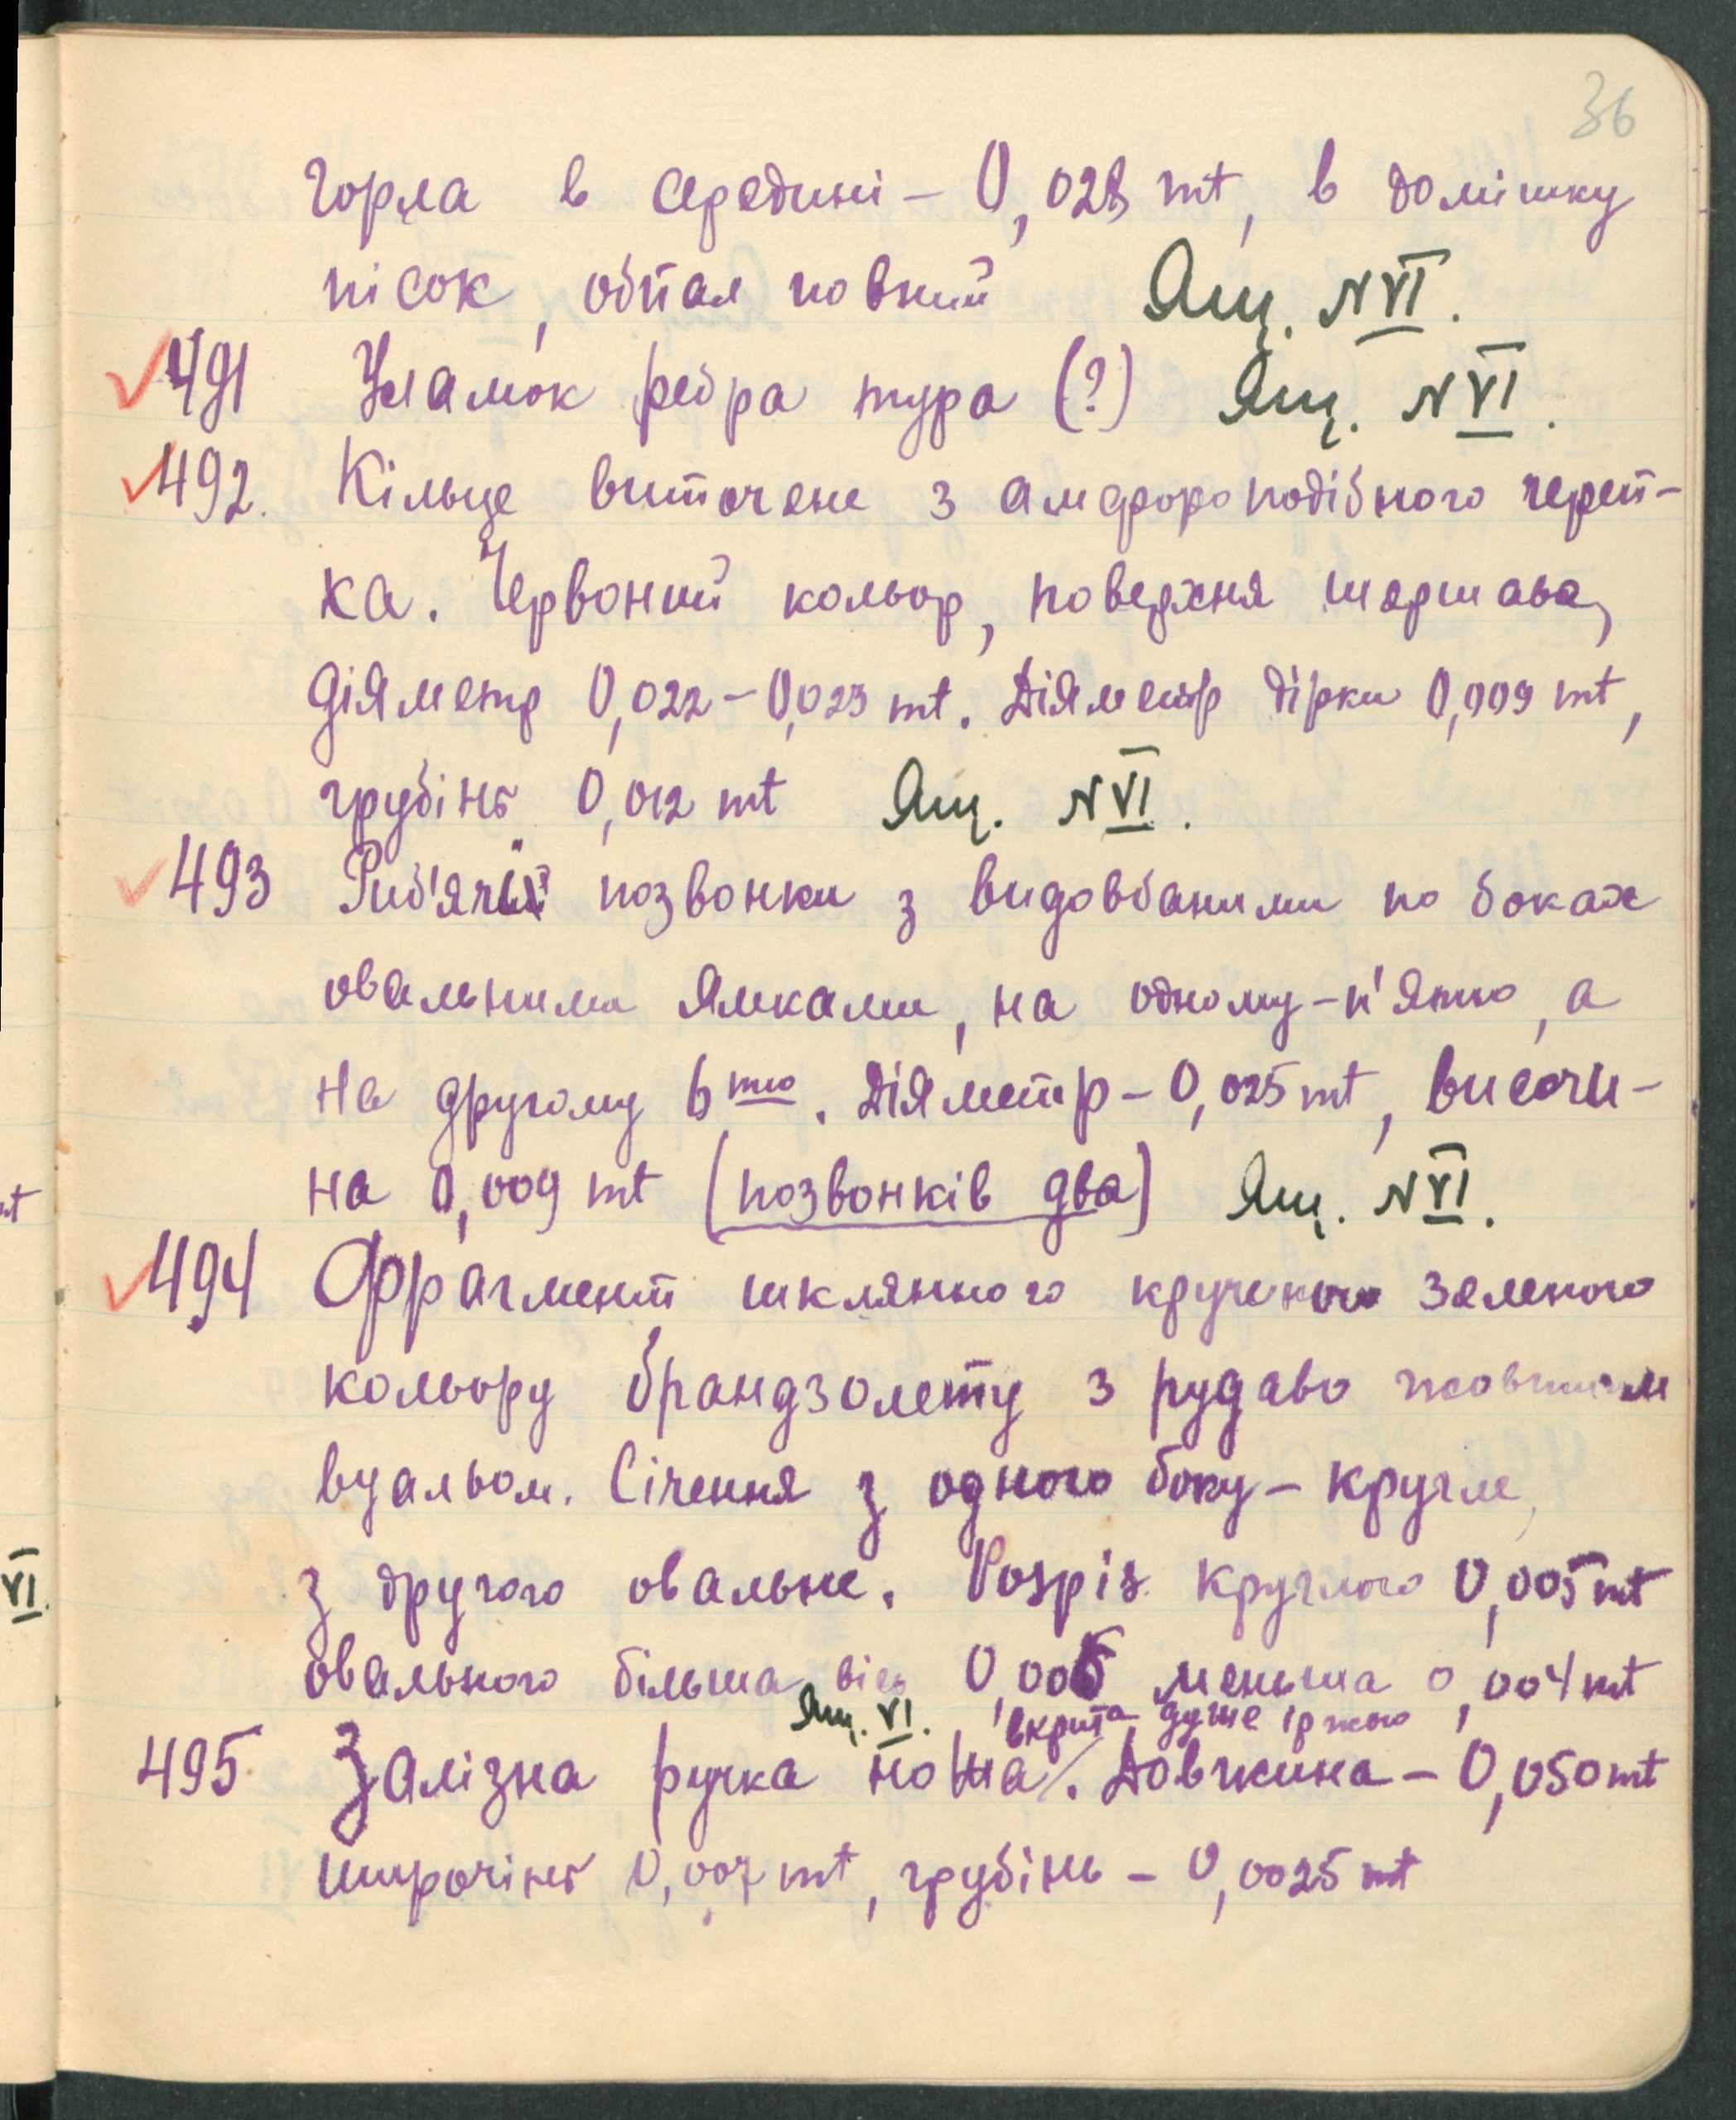 36
горла в середині – 0,028 mt, в домішку
пісок, обпал повний Ящ. N VI.
491 Уламок ребра тура (?) Ящ. N VI.
492. Кільце виточене з амфороподібного череп-
ка. Червоний кольор, поверхня шаршава,
діяметр 0,022 – 0,023 mt. Діяметр дірки 0,009 mt,
грубінь 0,012 mt Ящ. N VI.
493 Риб'ячі позвонки з видовбаними по боках
овальними ямками, на одному – п'ятю, а
на другому 6тю. Діяметр – 0,025 mt, височи-
на 0,009 mt (позвонків два) Ящ. N VI.
494 Фрагмент шклянного крученого зеленого
кольору брандзолету з рудаво жовтим
вуальом. Січення з одного боку – кругле,
з другого овальне. Розріз круглого 0,005 mt
овального більша вісь 0,006 меньша 0,004 mt
Ящ. VI. вкрита дуже іржою
495 Залізна ручка ножа. Довжина – 0,050 mt
широчінь 0,007 mt, грубінь – 0,0025 mt
mt
VI.